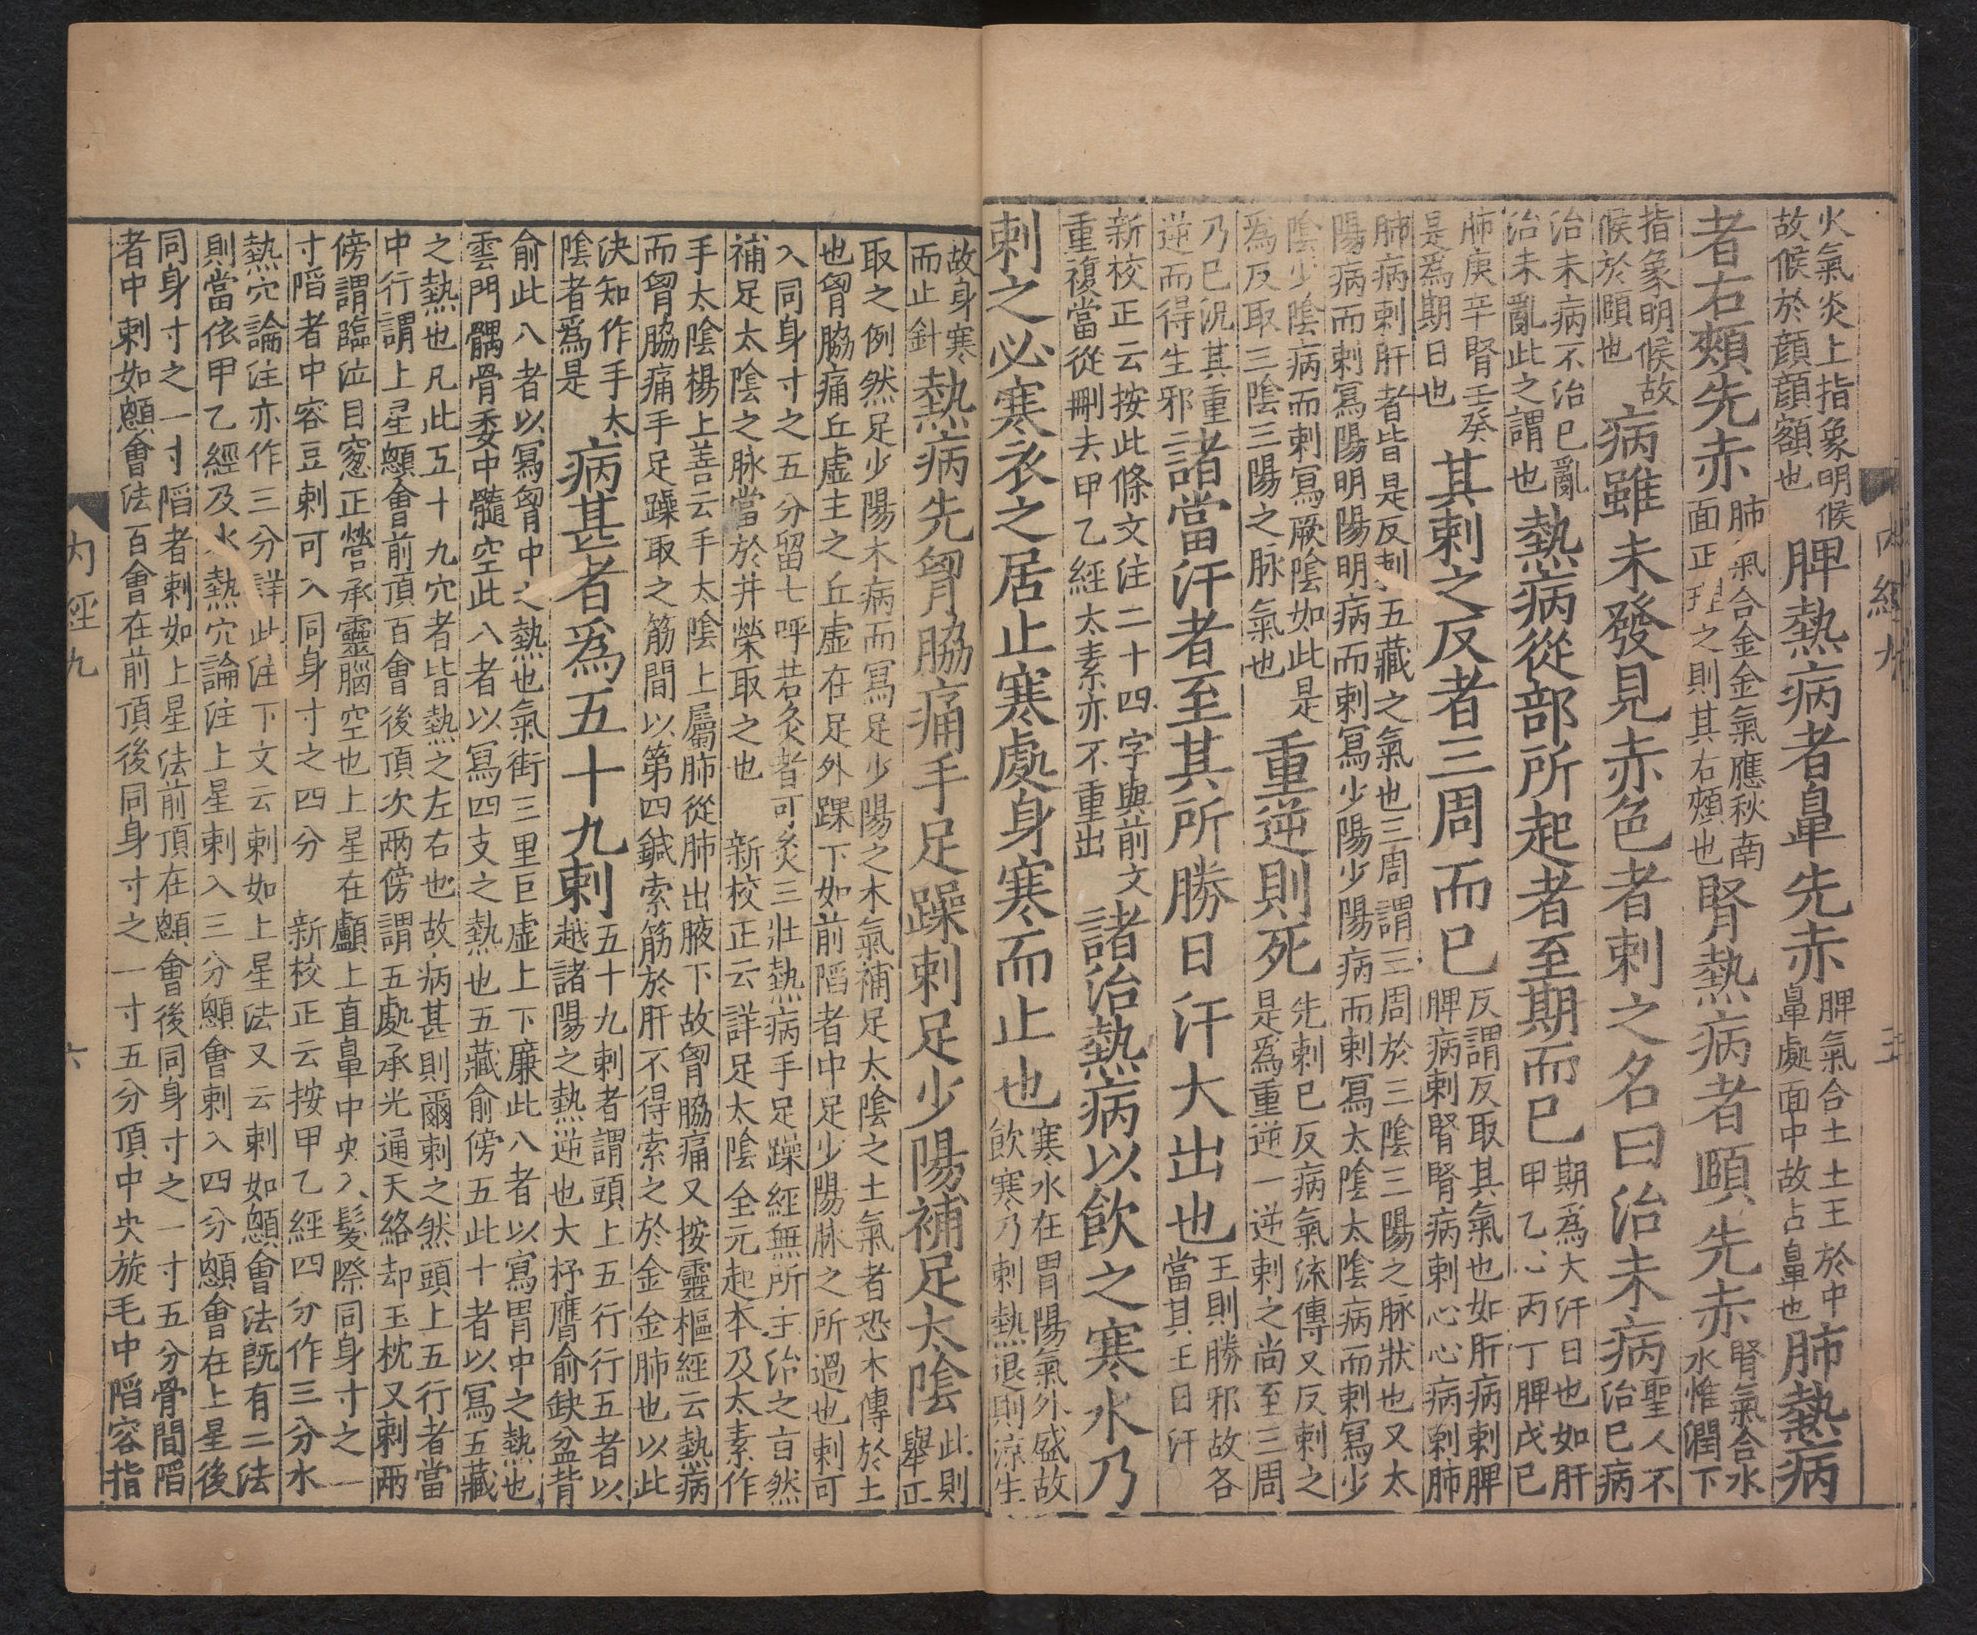 火氣炎上指象明候
故候於顔顔額也
脾熱病者鼻先赤
脾氣合土土王於中
鼻處面中故占鼻也
肺熱病
者右頰先赤
肺氣合金金氣應秋南
面正理之則其右頰也
腎熱病者頤先赤
腎氣合水
水惟潤下
指象明候故
候於頤也
病雖未發見赤色者刺之名曰治未病
聖人不
治已病
治未病不治已亂
治未亂此之謂也
熱病從部所起者至期而已
期爲大汗日也如肝
甲乙心丙丁脾戊已
肺庚辛腎壬癸
是爲期日也
其刺之反者三周而已
反謂反取其氣也如肝病刺脾
脾病刺腎腎病刺心心病刺肺
肺病刺肝者皆是反刺五藏之氣也三周謂三周於三陰三陽之脉狀也又太
陽病而刺寫陽明陽明病而刺寫少陽少陽病而刺寫太陰太陰病而刺寫少
陰少陰病而刺寫厥陰如此是
爲反取三陰三陽之脉氣也
重逆則死
先刺已反病氣流傳又反刺之
是爲重逆一逆刺之尚至三周
乃已況其重
逆而得生邪
諸當汗者至其所勝日汗大出也
王則勝邪故各
當其王日汗
新校正云按此條文注二十四字與前文
重複當從刪去甲乙經太素亦不重出
諸治熱病以飲之寒水乃
刺之必寒衣之居止寒處身寒而止也
寒水在胃陽氣外盛故
飲寒乃刺熱退則凉生
故身寒
而止針
熱病先胷脇痛手足躁刺足少陽補足太陰
此則
舉正
取之例然足少陽木病而寫足少陽之木氣補足太陰之土氣者恐木傳於土
也胷脇痛丘虛主之丘虛在足外踝下如前陷者中足少陽脉之所過也刺可
入同身寸之五分留七呼若灸者可灸三壯熱病手足躁經無所主治之旨然
補足太陰之脉當於井滎取之也 新校正云詳足太陰全元起本及太素作
手太陰楊上善云手太陰上屬肺從肺出腋下故胷脇痛又按靈樞經云熱病
而胷脇痛手足躁取之筋間以第四鍼索筋於肝不得索之於金金肺也以此
決知作手太
陰者爲是
病甚者爲五十九刺
五十九刺者謂頭上五行行五者以
越諸陽之熱逆也大杼膺俞缺盆背
俞此八者以寫胷中之熱也氣街三里巨虛上下廉此八者以寫胃中之熱也
雲門髃骨委中髓空此八者以寫四支之熱也五藏俞傍五此十者以寫五藏
之熱也凡此五十九穴者皆熱之左右也故病甚則爾刺之然頭上五行者當
中行謂上星顖會前頂百會後頂次兩傍謂五處承光通天絡却玉枕又刺兩
傍謂臨泣目窻正營承靈腦空也上星在顱上直鼻中央入髮際同身寸之一
寸陷者中容豆刺可入同身寸之四分 新校正云按甲乙經四分作三分水
熱穴論注亦作三分詳此注下文云刺如上星法又云刺如顖會法旣有二法
則當依甲乙經及水熱穴論注上星刺入三分顖會刺入四分顖會在上星後
同身寸之一寸陷者刺如上星法前頂在顖會後同身寸之一寸五分骨間陷
者中刺如顖會法百會在前頂後同身寸之一寸五分頂中央旋毛中陷容指
內經九
六
內經九